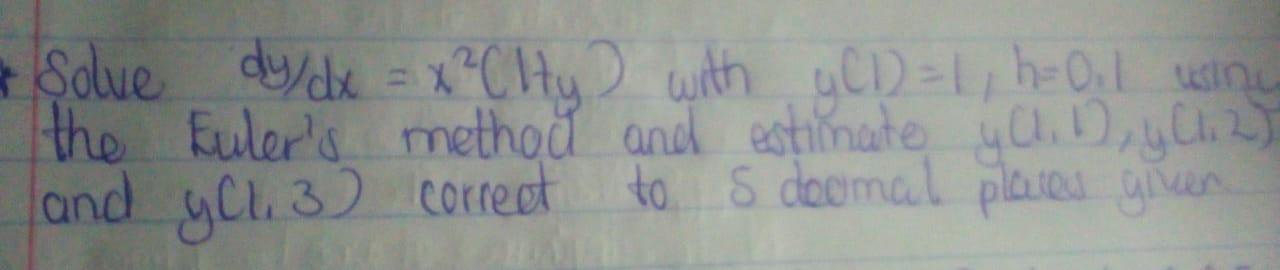 * Solve dy/dx = x²(1+y) with y(1)=1, h=0.1 using
the Euler's method and estimate y(1.1), y(1.2)
and y(1.3) correct to 5 decimal places given